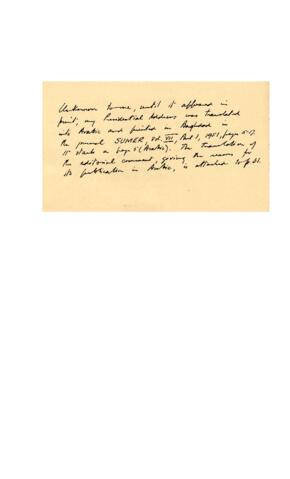 Unknown to me, until it appeared in
print, my Presidential Address was translated
into Arabic and printed in Baghdad in
the journal SUMER Vol. VII, Part 1, 1951, page 5-17.
It starts on page 5 (Arabic). The translation of
the editorial comment, giving the reason for
its publication in Arabic, is attached to p 31.